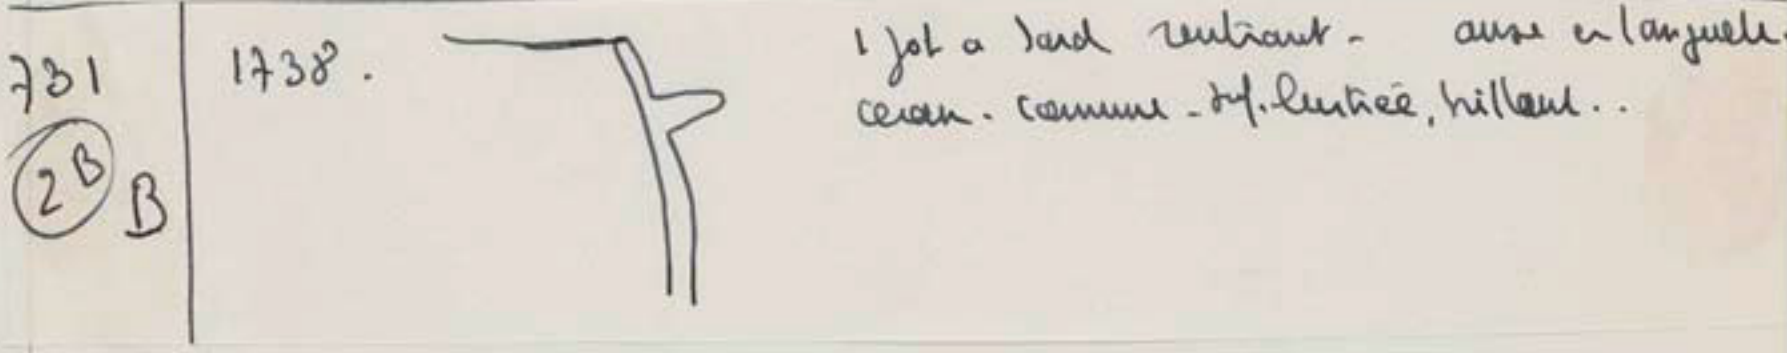 731
2B
B
1738.
1 pot a bord rentrant - anse en languette.
ceram. commune - surf. lustrée, brillant..